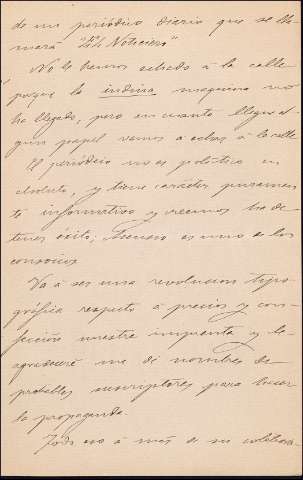 de un periódico diario que se lla
mará "El Noticiero"
No le hemos echado á la calle
porque la indina maquina no
ha llegado, pero en cuanto llegue al
gun papel vamos a echar á la calle
El periódico no es político en
absoluto, y tiene carácter puramen
te informativo y creemos ha de
tener éxito; Ascensio es uno de los
consocios
Va á ser una revolucion tipo
gráfica respecto á precios y con
fección nuestra imprenta y le
agradeceré me dé nombres de
probables suscriptores para hacer
la propaganda.
Todo eso á más de su colabora